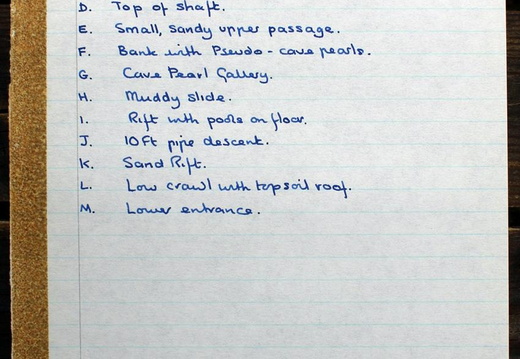 D. Top of shaft.
E. Small, sandy upper passage.
F. Bank with Pseudo-cave pearls.
G. Cave Pearl Gallery.
H. Muddy slide.
I. Rift with pools on floor.
J. 10Ft pipe descent.
K. Sand Rift.
L. Low crawl with topsoil roof.
M. Lower entrance.